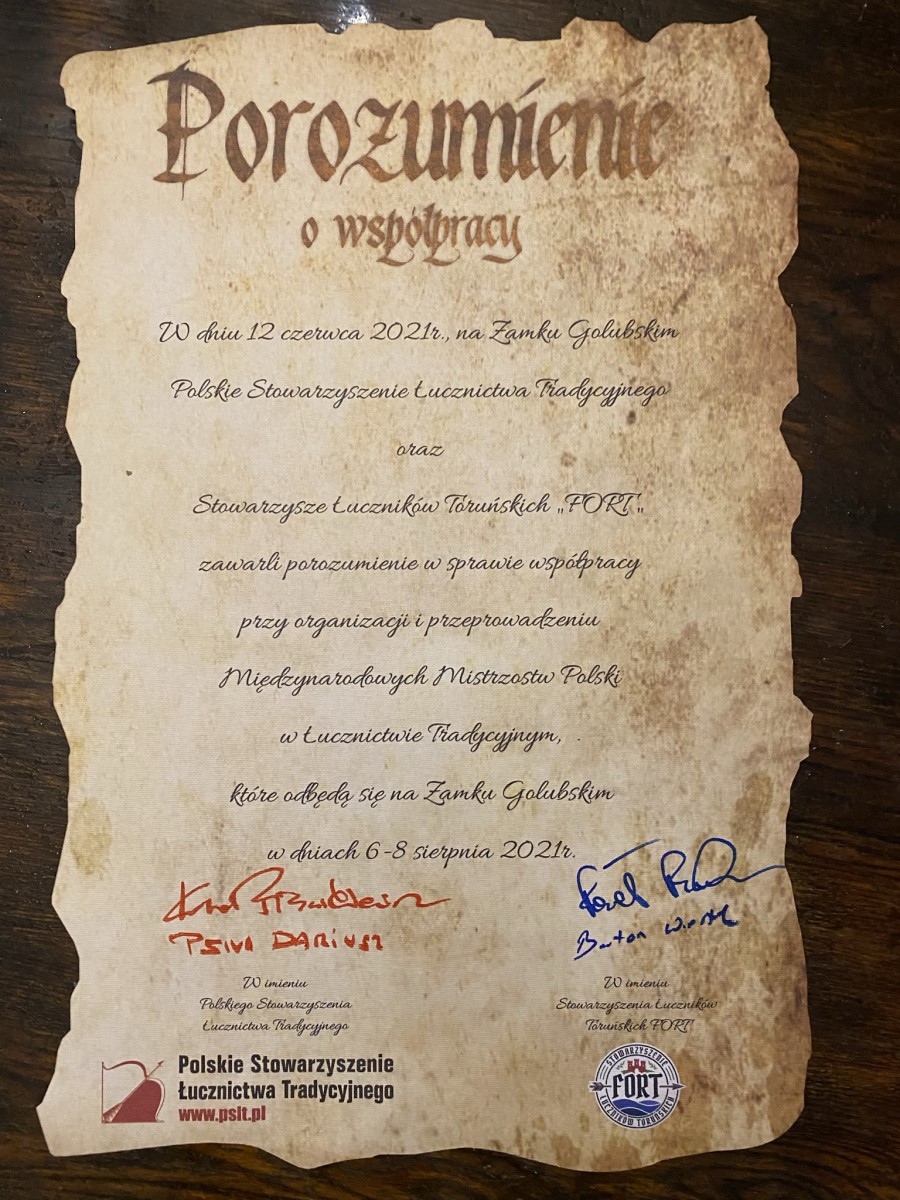 Porozumienie
o współpracy
W dniu 12 czerwca 2021r., na Zamku Golubskim
Polskie Stowarzyszenie Łucznictwa Tradycyjnego
oraz
Stowarzysze Łuczników Toruńskich „FORT„
zawarli porozumienie w sprawie współpracy
przy organizacji i przeprowadzeniu
Międzynarodowych Mistrzostw Polski
w Łucznictwie Tradycyjnym,
które odbędą się na Zamku Golubskim
w dniach 6-8 sierpnia 2021r.
DARiusz
W imieniu
Polskiego Stowarzyszenia
Łucznictwa Tradycyjnego
W imieniu
Stowarzyszenia Łuczników
Toruńskich FORT
Polskie Stowarzyszenie
Łucznictwa Tradycyjnego
www.pslt.pl
STOWARZYSZENIE
FORT
ŁUCZNIKÓW TORUŃSKICH